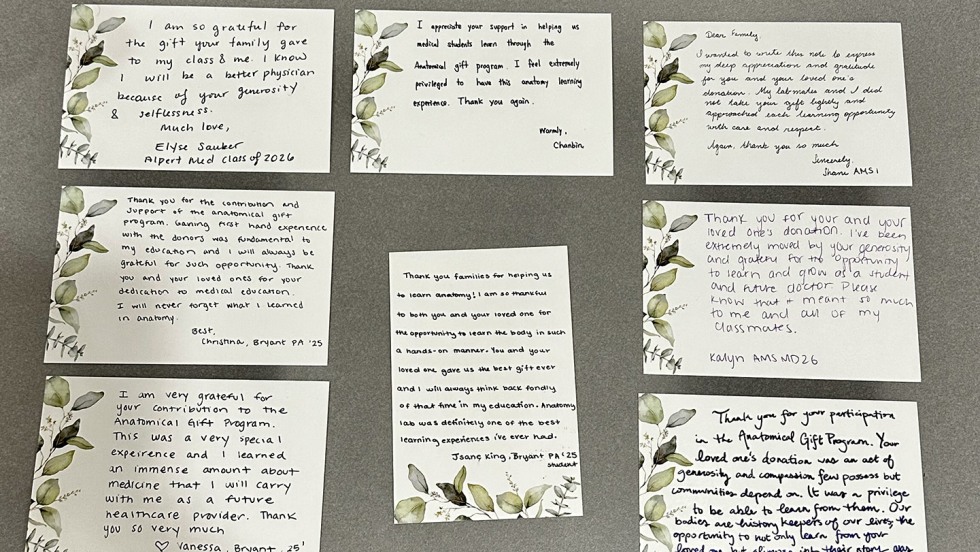 I am so grateful for
the gift your family gave
to my class & me. I know
I will be a better physician
because of your generosity
& selflessness.
Much love,
Elyse Sauber
Alpert Med Class of 2026
I appreciate your support in helping us
medical students learn through the
Anatomical gift program. I feel extremely
privileged to have this anatomy learning
experience. Thank you again.
Warmly,
Chanbin
Dear Family,
I wanted to write this note to express
my deep appreciation and gratitude
for you and your loved one's
donation. My lab mates and I did
not take your gift lightly and
approached each learning opportunity
with care and respect.
Again, thank you so much
Sincerely,
AMS1
Thank you for the contribution and
support of the anatomical gift
program. Gaining first hand experience
with the donors was fundamental to
my education and I will always be
grateful for such opportunity. Thank
you and your loved ones for your
dedication to medical education.
I will never forget what I learned
in anatomy.
Best,
Christina, Bryant PA '25
Thank you families for helping us
to learn anatomy! I am so thankful
to both you and your loved one for
the opportunity to learn the body in such
a hands-on manner. You and your
loved one gave us the best gift ever
and I will always think back fondly
of that time in my education. Anatomy
lab was definitely one of the best
learning experiences i've ever had.
King, Bryant PA '25
student
Thank you for your and your
loved one's donation. I've been
extremely moved by your generosity
and grateful for the opportunity
to learn and grow as a student
and future doctor. Please
know that it meant so much
to me and all of my
classmates.
Kalyn AMS MD26
I am very grateful for
your contribution to the
Anatomical Gift Program.
This was a very special
expeirence and I learned
an immense amount about
medicine that I will carry
with me as a future
healthcare provider. Thank
you so very much
♡ Vanessa, Bryant, 25'
Thank you for your participation
in the Anatomical Gift Program. Your
loved one's donation was an act of
generosity and compassion few possess but
communities depend on. It was a privilege
to be able to learn from them. Our
bodies are history keepers of our lives; the
opportunity to not only learn from your
loved one but glimpse into their story was